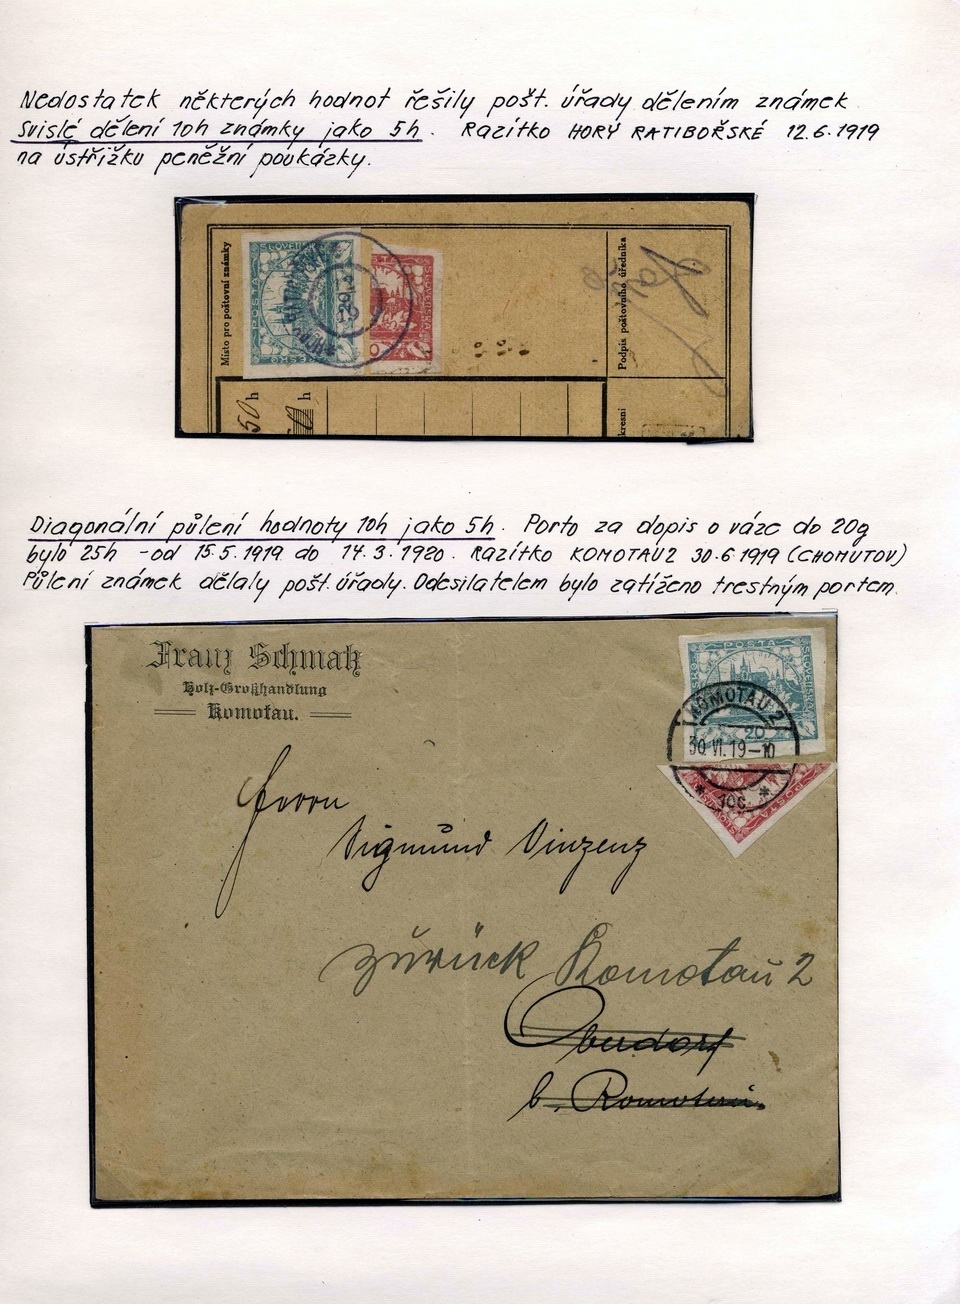 Nedostatek některých hodnot řešily pošt. úřady dělením známek
Svislé dělení 10h známky jako 5h. Razítko HORY RATIBOŘSKÉ 12.6.1919
na ústřižku peněžní poukázky.
Místo pro poštovní známky
Podpis poštovního úředníka
50 h
h
kresní
Diagonální půlení hodnoty 10h jako 5h. Porto za dopis o váze do 20g
bylo 25h - od 15.5.1919 do 14.3.1920. Razítko KOMOTAU2 30.6.1919 (CHOMUTOV)
Půlení známek dělaly pošt. úřady. Odesilatelem bylo zatíženo trestným portem.
Franz Schmatz
Holz-Großhandlung
Komotau.
POSTA
KOMOTAU 2
20
30.VI.19-10
* 10c *
POSTA
Herrn
Sigmund Vinzenz
zurück Komotau 2
Oberdorf
b. Komotau.